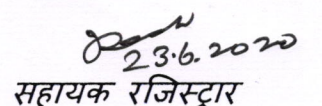 23.6.2020
सहायक रजिस्ट्रार